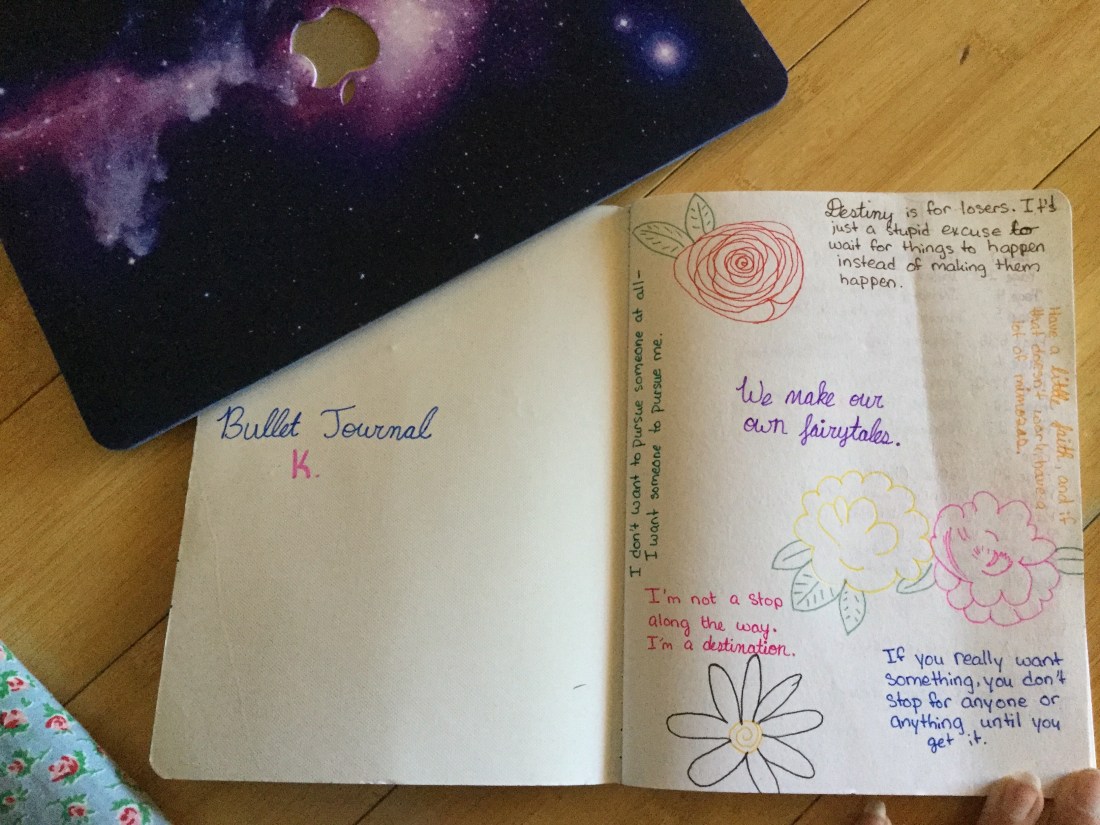 Bullet Journal
K.
Destiny is for losers. It's
just a stupid excuse to
wait for things to happen
instead of making them
happen.
I don't want to pursue someone at all-
I want someone to pursue me.
Have a little faith, and if
that doesn't work, have a
lot of mimosas.
We make our
own fairytales.
I'm not a stop
along the way.
I'm a destination.
If you really want
something, you don't
stop for anyone or
anything until you
get it.